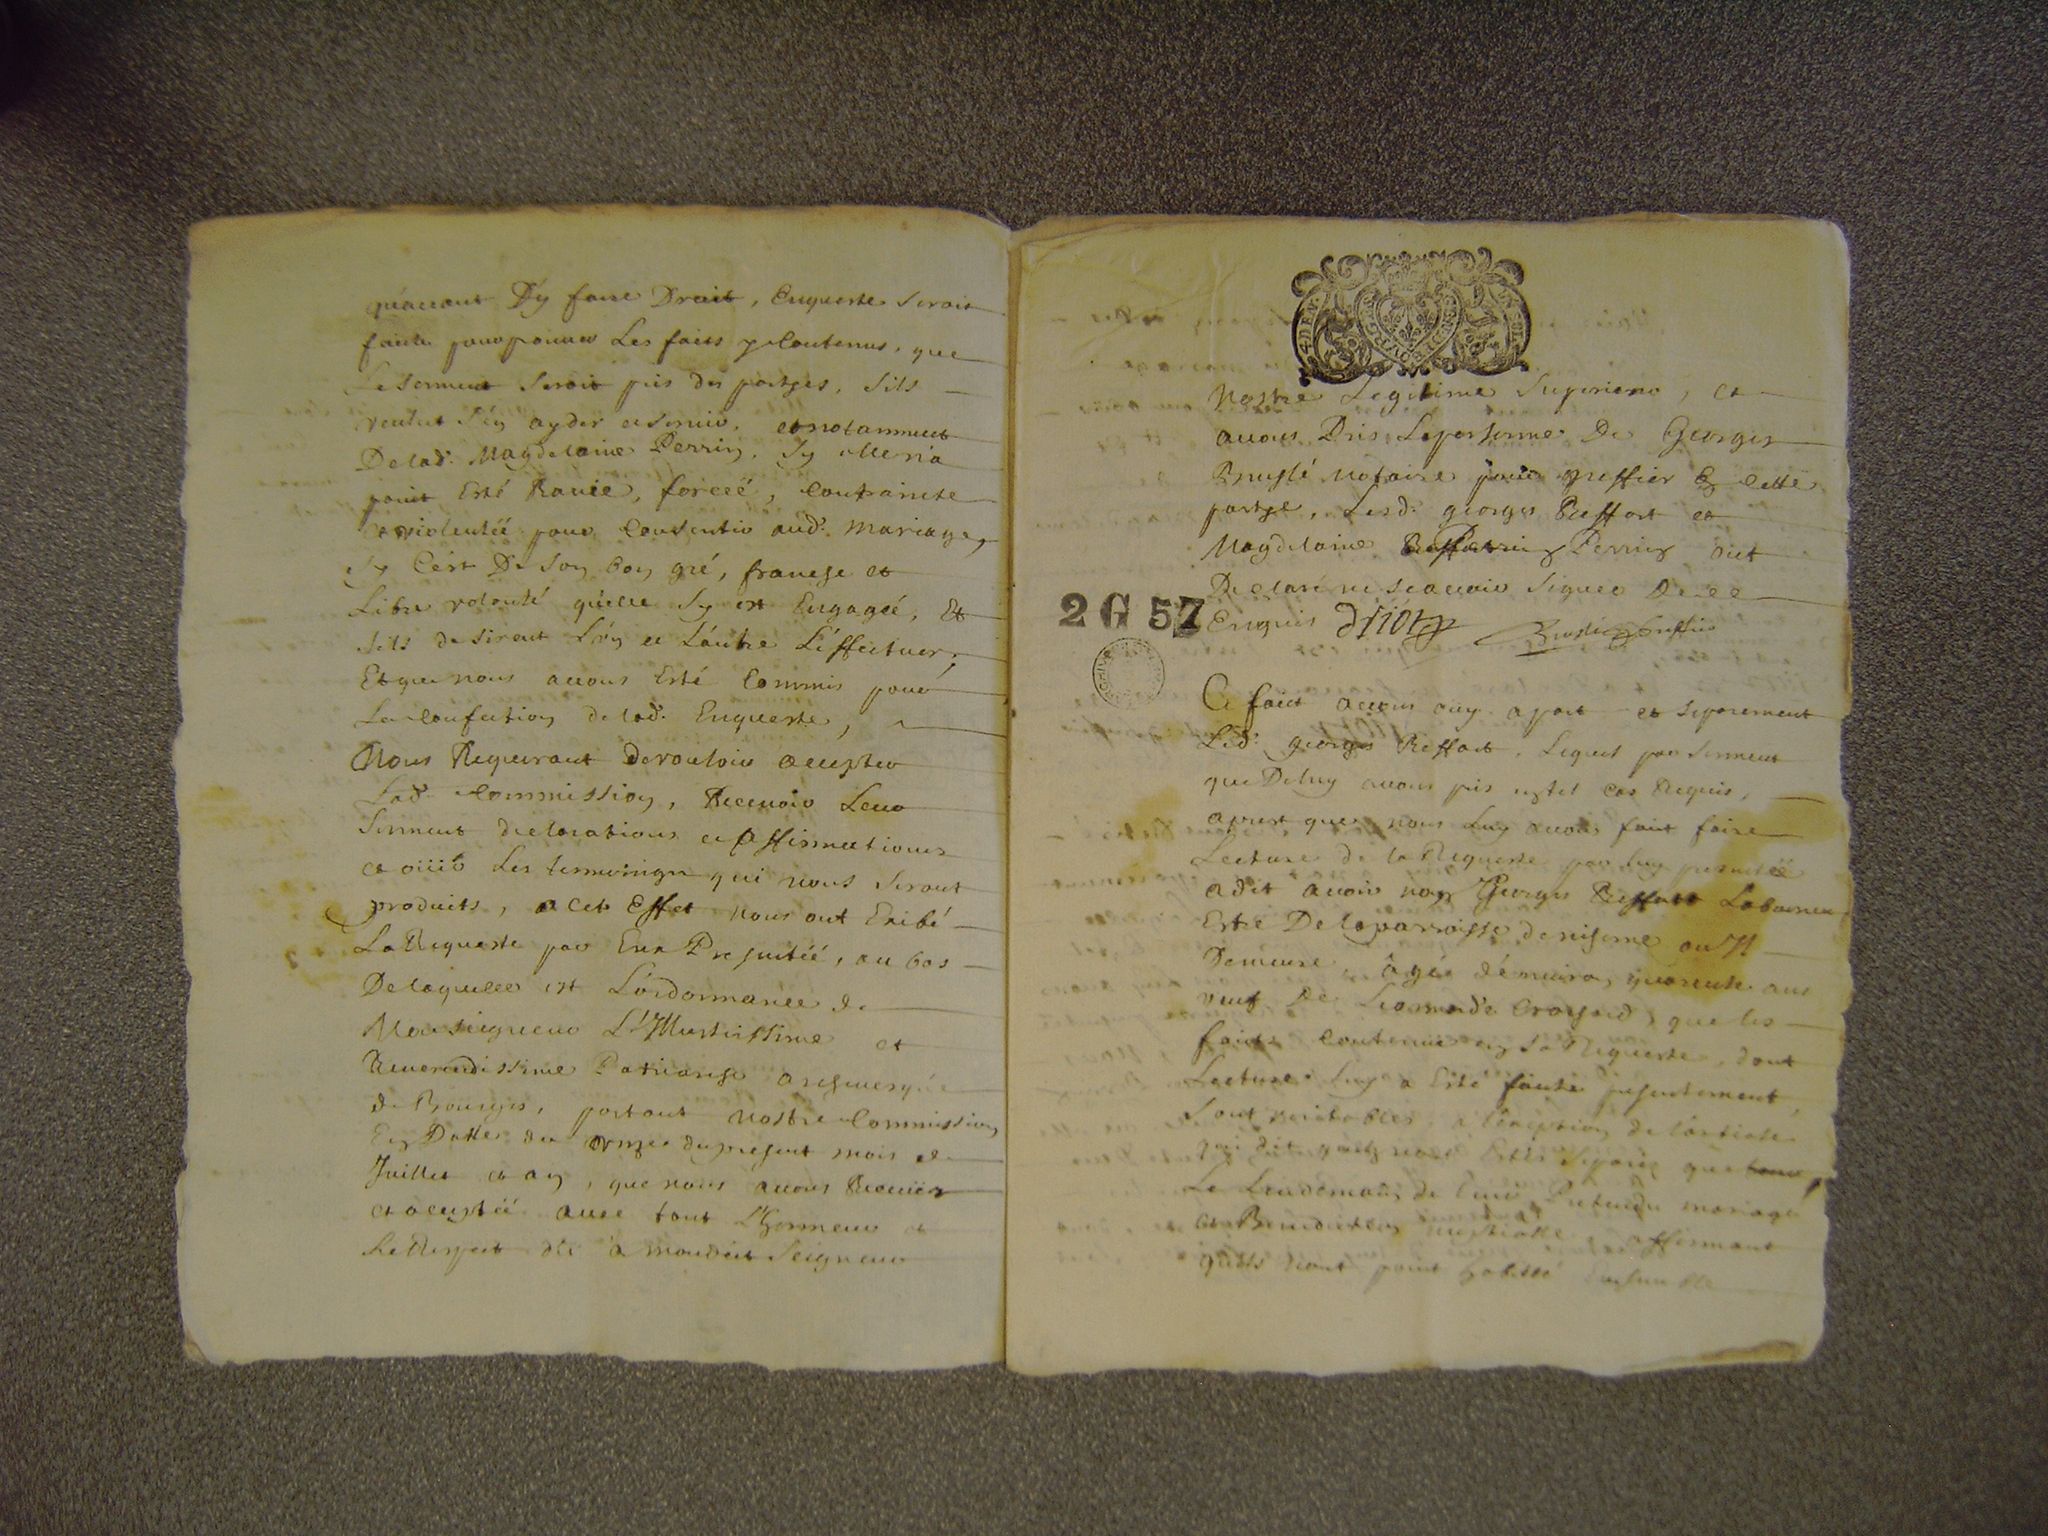 qu'auant D'y faire Droit, Enqueste seroit
faitte pour prouuer Les faits y Contenus, que
Le serment seroit pris des partyes, sils
veulent s'en ayder et seruir, et notamment
De lad. Magdelaine Perrin, sy elle n'a
point Esté Rauie, forceé, Contrainte
violenteé pour Consentir aud. Mariage,
sy C'est De son bon gré, franche et
Libre volonté qu'elle sy est Engageé, Et
sils desirent L'un et L'autre L'effectuer,
Et que nous auons Esté Commis pour
La Confection de lad. Enqueste,
Nous Requerant de vouloir accepter
Lad. Commission, Receuoir Leur
serment declarations et affirmations
et ouir Les temoings qui nous seront
produits, a cet Effet nous ont Exibé
La Requeste par Eux Presenteé, au bas
De laquelle est L'ordonnance de
Monseigneur L'Illustrissime et
Reuerendissime Patriarche archeuesque
de Bourges, portant nostre Commission
En Datte du onze du present mois de
Juillet et an, que nous auons Receüe
et accepteé auec tout L'honneur et
Le Respect dû a mondit Seigneur
Nostre Legitime Superieur, et
auons Pris La personne De Georges
Bruslé Notaire pour greffier En cette
partye, Lesd. georges Reffort et
Magdelaine Perrin ont
Declaré ne scauoir signer De ce
Enquis
2 G 57
Ce fait auons ouy apart et separement
Led. georges Reffort, Lequel par serment
que De luy auons pris en tel cas Requis,
apres que nous Luy auons fait faire
Lecture de la Requeste par luy presenteé
a dit auoir nom Georges Reffort Laboureur
Estre De la parroisse de niherne ou Il
Demeure, âgé d'enuiron quarente ans
veuf De Leonarde, que les
faits Contenus en sa Requeste, dont
Lecture Luy a Esté faitte presentement,
sont veritables, a l'exception de l'article
qui dit quils n'ont Estés separéz que
Le Lendemain de leur Pretendu mariage
et Benediction nuptialle, affirmant
quils n'ont point habitté Ensemble